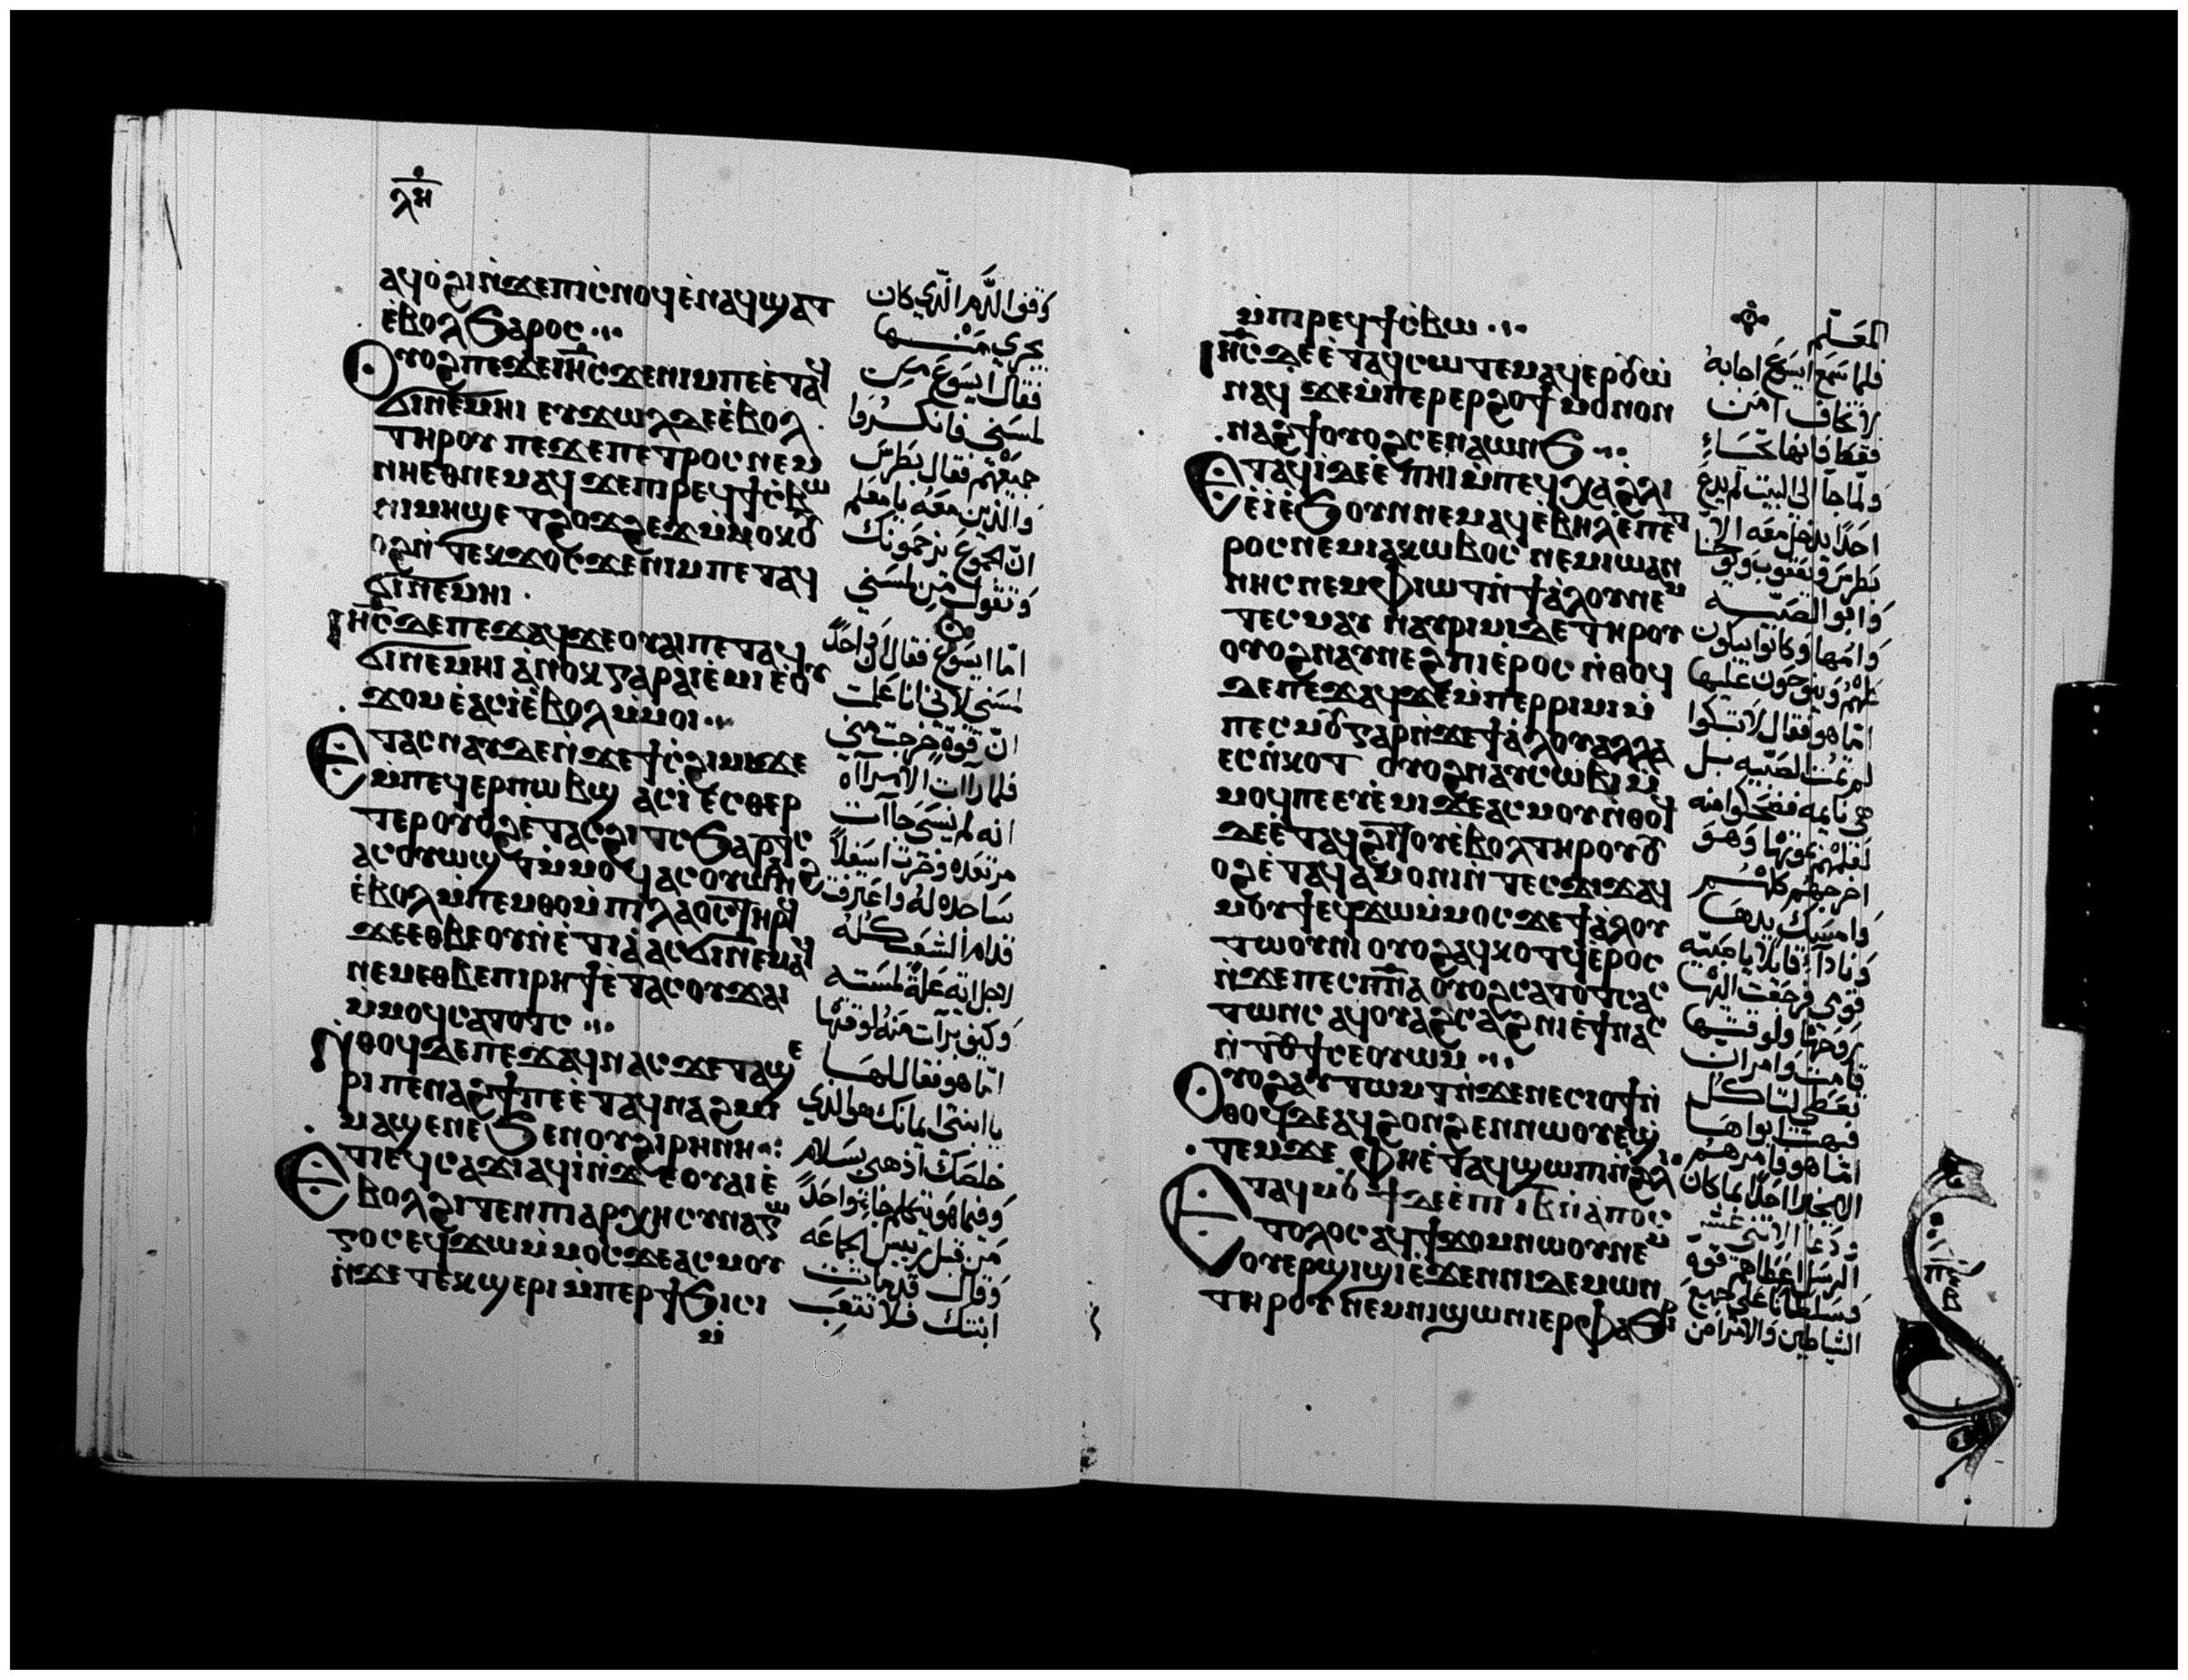 ⲗⲏ
ⲁϥⲟ̀ϩⲓ ⲛ̀ϫⲉ ⲡⲓⲥ̀ⲛⲟϥ ⲉ̀ⲛⲁϥϣⲁⲧ
ⲉ̀ⲃⲟⲗ ϧⲁⲣⲟⲥ
ⲟⲩⲟϩ ⲡⲉϫⲉ ⲓⲏ̅ⲥ̅ ϫⲉ ⲛⲓⲙ ⲡⲉ ⲉ̀ⲧⲁϥ
ϭⲓ ⲛⲉⲙⲏⲓ ⲉⲩϫⲱⲗ ⲇⲉ ⲉ̀ⲃⲟⲗ
ⲧⲏⲣⲟⲩ ⲡⲉϫⲉ ⲡⲉⲧⲣⲟⲥ ⲛⲉⲙ
ⲛⲏⲉⲑⲛⲉⲙⲁϥ ϫⲉ ⲡⲓⲣⲉϥϯⲥ̀ⲃⲱ
ⲛⲓⲙⲏϣ ⲉⲧϩⲟϫϩⲉϫ ⲙ̀ⲙⲟⲕ ⲟⲩ
ⲟϩ ⲛ̀ⲧⲉⲕϫⲟⲥ ϫⲉ ⲛⲓⲙ ⲡⲉⲧⲁϥ
ϭⲓ ⲛⲉⲙⲏⲓ
ⲓⲏ̅ⲥ̅ ⲇⲉ ⲡⲉϫⲁϥ ϫⲉ ⲟⲩⲁⲓ ⲡⲉⲧⲁϥ
ϭⲓ ⲛⲉⲙⲏⲓ ⲁ̀ⲛⲟⲕ ⲅⲁⲣ ⲁⲓⲉ̀ⲙⲓ ⲉ̀ⲟⲩ
ϫⲟⲙ ⲉ̀ⲁⲥⲓ̀ ⲉ̀ⲃⲟⲗ ⲙⲙⲟⲓ
ⲉⲧⲁⲥⲛⲁⲩ ⲇⲉ ⲛ̀ϫⲉ ϯⲥ̀ϩⲓⲙⲓ ϫⲉ
ⲙ̀ⲡⲉϥⲉⲣⲡⲱⲃϣ ⲁⲥⲓ̀ ⲉⲥⲥⲑⲉⲣ
ⲧⲉⲣ ⲟⲩⲟϩ ⲉ̀ⲧⲁⲥϩⲓⲧⲥ ϧⲁⲣⲁⲧϥ
ⲁⲥⲟⲩⲱϣⲧ ⲙ̀ⲙⲟϥ ⲁⲥⲟⲩⲱⲛϩ
ⲉ̀ⲃⲟⲗ ⲙ̀ⲡⲉⲙⲑⲟ ⲙ̀ⲡⲓⲗⲁⲟⲥ ⲧⲏⲣϥ
ϫⲉ ⲉⲑⲃⲉ ⲟⲩ ⲛ̀ⲉⲧⲓⲁ̀ ⲁⲥϭⲓ ⲛⲉⲙⲁϥ
ⲛⲉⲙ ⲉⲑⲃⲉ ⲡⲓⲣⲏϯ ⲉ̀ⲧⲁⲥⲟⲩϫⲁⲓ
ⲙ̀ⲙⲟϥ ⲥⲁⲧⲟⲧⲥ
ⲛ̀ⲑⲟϥ ⲇⲉ ⲡⲉϫⲁϥ ⲛⲁⲥ ϫⲉ ⲧⲁϣⲉ
ⲣⲓ ⲡⲉⲛⲁϩϯ ⲡⲉ ⲉ̀ⲧⲁϥⲛⲁϩⲙⲓ
ⲙⲁϣⲉ ⲛⲉ ϧⲉⲛ ⲟⲩϩⲓⲣⲏⲛⲏ
ⲉⲧⲓ ⲉϥⲥⲁϫⲓ ⲁϥⲓ̀ ⲛ̀ϫⲉ ⲟⲩⲁⲓ ⲉ̀
ⲃⲟⲗ ϩⲓⲧⲉⲛ ⲡⲓⲁⲣⲭⲏⲥⲩⲛⲁⲅⲱ
ⲅⲟⲥ ⲉϥϫⲱ ⲙ̀ⲙⲟⲥ ϫⲉ ⲁⲥⲙⲟⲩ
ⲛ̀ϫⲉ ⲧⲉⲕϣⲉⲣⲓ ⲙ̀ⲡⲉⲣϯϧⲓⲥⲓ
ⲙ̀
وقف الدم الذي كان
يجري منها
فقال ايسوع من
لمسني فانكروا
جميعهم فقال بطرس
والذين معه يا معلم
ان الجموع يزحمونك
وتقول من لمسني
اما ايسوع فقال ان واحدًا
لمسني لاني انا علمت
ان قوة خرجت مني
فلما رات الامراه
انه لم ينسى جات
مرتعده وخرت اسفلًا
ساجده له واعترفت
قدام الشعب كله
لاجل اية علة لمسته
وكيف برات منه لوقتها
اما هو فقال لها
يا ابنتي ايمانك هو الذي
خلصك اذهبي بسلام
وفيما هو يتكلم جا واحدًا
من قبل رييس الجماعه
وقال قد ماتت
ابنتك فلا تتعب
ⲙ̀ⲡⲓⲣⲉϥϯⲥ̀ⲃⲱ
ⲓⲏ̅ⲥ̅ ⲇⲉ ⲉ̀ⲧⲁϥⲥⲱⲧⲉⲙ ⲁϥⲉⲣⲟⲩⲱ̀
ⲛⲁϥ ϫⲉ ⲙ̀ⲡⲉⲣⲉⲣϩⲟϯ ⲙⲟⲛⲟⲛ
ⲛⲁϩϯ ⲟⲩⲟϩ ⲥⲉⲛⲁⲱⲛϧ
ⲉⲧⲁϥⲓ̀ ⲇⲉ ⲉ̀ⲡⲏⲓ ⲙ̀ⲡⲉϥⲭⲁ ϩⲗⲓ
ⲉ̀ⲓ̀ ⲉ̀ϧⲟⲩⲛ ⲛⲉⲙⲁϥ ⲉⲃⲏⲗ ⲉ̀ⲡⲉⲧ
ⲣⲟⲥ ⲛⲉⲙ ⲓⲁⲕⲱⲃⲟⲥ ⲛⲉⲙ ⲓⲱⲁⲛ
ⲛⲏⲥ ⲛⲉⲙ ⲫⲓⲱⲧ ⲛ̀ϯⲁ̀ⲗⲟⲩ ⲛⲉⲙ
ⲧⲉⲥⲙⲁⲩ ⲛⲁⲩⲣⲓⲙⲓ ⲇⲉ ⲧⲏⲣⲟⲩ
ⲟⲩⲟϩ ⲛⲁⲩⲛⲉϩⲡⲓ ⲉ̀ⲣⲟⲥ ⲛ̀ⲑⲟϥ
ⲇⲉ ⲡⲉϫⲁϥ ϫⲉ ⲙ̀ⲡⲉⲣⲣⲓⲙⲓ ⲙ̀
ⲡⲉⲥⲙⲟⲩ ⲅⲁⲣ ⲛ̀ϫⲉ ϯⲁ̀ⲗⲟⲩ ⲁⲗⲗⲁ
ⲉⲥⲛ̀ⲕⲟⲧ ⲟⲩⲟϩ ⲛⲁⲩⲥⲱⲃⲓ ⲙ̀
ⲙⲟϥ ⲡⲉ ⲉⲩⲉ̀ⲙⲓ ϫⲉ ⲁⲥⲙⲟⲩ ⲛ̀ⲑⲟϥ
ⲇⲉ ⲉ̀ⲧⲁϥϩⲓⲧⲟⲩ ⲉ̀ⲃⲟⲗ ⲧⲏⲣⲟⲩ ⲟⲩ
ⲟϩ ⲉ̀ⲧⲁϥⲁ̀ⲙⲟⲛⲓ ⲛ̀ⲧⲉⲥϫⲓϫ ⲁϥ
ⲙⲟⲩϯ ⲉϥϫⲱ ⲙ̀ⲙⲟⲥ ϫⲉ ϯⲁ̀ⲗⲟⲩ
ⲧⲱⲟⲩⲛⲓ ⲟⲩⲟϩ ⲁϥⲕⲟⲧϥ ⲉ̀ⲣⲟⲥ
ⲛ̀ϫⲉ ⲡⲉⲥⲡ̅ⲛ̅ⲁ̅ ⲟⲩⲟϩ ⲥⲁⲧⲟⲧⲥ ⲁⲥ
ⲧⲱⲛⲥ ⲁϥⲟⲩⲁϩⲥⲁϩⲛⲓ ⲉ̀ϯ ⲛⲁⲥ
ⲛ̀ⲧⲟⲩϯ ⲥⲉⲟⲩⲱⲙ
ⲟⲩⲟϩ ⲁⲩⲧⲱⲙⲧ ⲛ̀ϫⲉ ⲛⲉⲥⲓⲟϯ ⲛ̀
ⲑⲟϥ ⲇⲉ ⲁϥϩⲟⲛϩⲉⲛ ⲛⲱⲟⲩ ⲉϣ
ⲧⲉⲙϫⲉ ⲫⲏⲉ̀ⲧⲁϥϣⲱⲡⲓ ⲛ̀ϩⲗⲓ
ⲉⲧⲁϥⲙⲟⲩϯ ⲇⲉ ⲉ̀ⲡⲓⲓ̅ⲃ̅ ⲛ̀ⲁⲡⲟⲥ
ⲧⲟⲗⲟⲥ ⲁϥϯϫⲟⲙ ⲛⲱⲟⲩ ⲛⲉⲙ
ⲟⲩⲉⲣϣⲓϣⲓ ⲉ̀ϫⲉⲛ ⲛⲓⲇⲉⲙⲱⲛ
ⲧⲏⲣⲟⲩ ⲛⲉⲙ ⲛⲓϣⲱⲛⲓ ⲉⲣⲫⲁϧⲣⲓ
المعلم
فلما سمع ايسوع اجابه
لا تخاف امن
فقط فانها تحيا
ولما جا الى البيت لم يدع
احدًا يدخل معه الا
بطرس ويعقوب ويوحنا
وابو الصبيه
وامها وكانوا يبكون
كلهم وينوحون عليها
اما هو فقال لا تبكوا
لم تمت الصبيه بل
هي نايمه فضحكوا منه
لعلمهم بموتها وهو
اخرجهم كلهم
وامسك يدها
ونادا قايلًا يا صبيه
قومي فرجعت اليها
روحها ولوقتها
قامت وامر ان
تعطى لتاكل
فبهت ابواها
اما هو فامرهم
الا يخبروا احدًا بما كان
ودعا الاثنى عشر
الرسل اعطاهم قوة
وسلطانًا على جميع
الشياطين والامراض